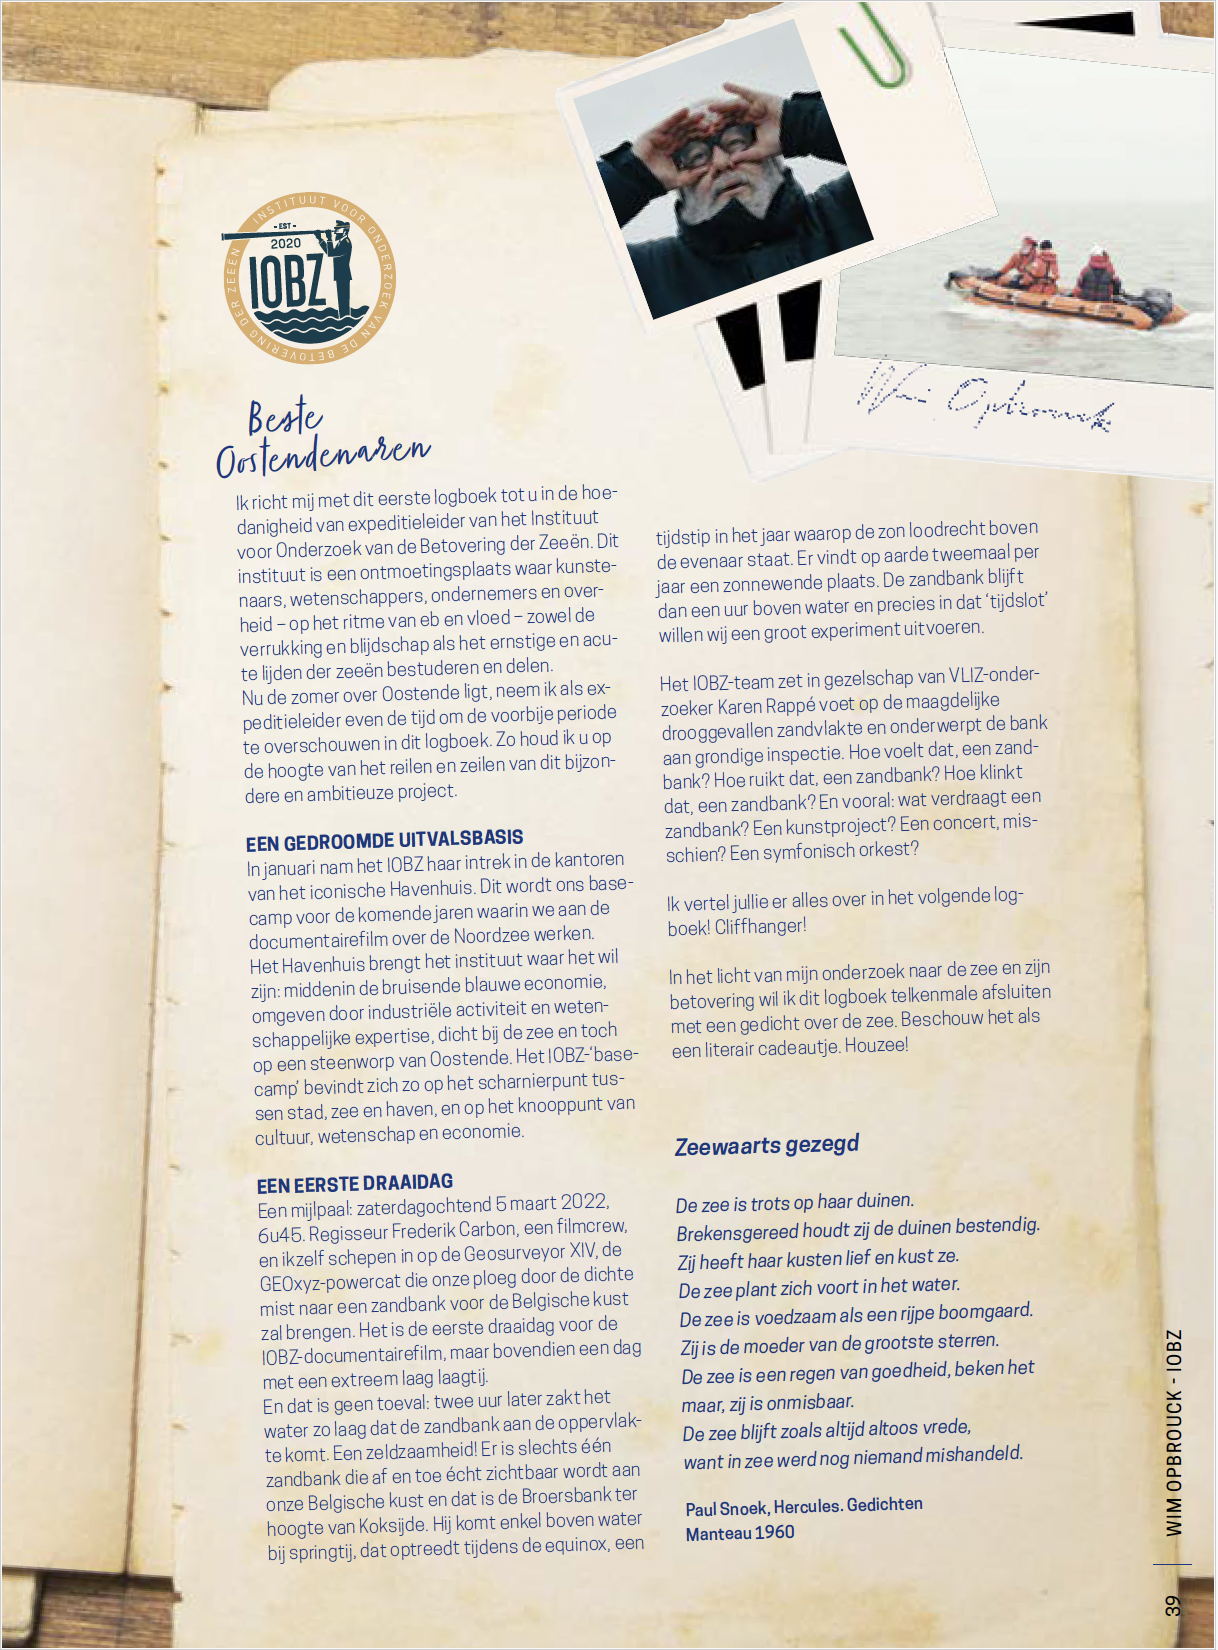 INSTITUUT VOOR ONDERZOEK VAN DE BETOVERING DER ZEEËN
- EST -
2020
IOBZ
Wim Opbrouck
Beste
Oostendenaren
Ik richt mij met dit eerste logboek tot u in de hoe-
danigheid van expeditieleider van het Instituut
voor Onderzoek van de Betovering der Zeeën. Dit
instituut is een ontmoetingsplaats waar kunste-
naars, wetenschappers, ondernemers en over-
heid – op het ritme van eb en vloed – zowel de
verrukking en blijdschap als het ernstige en acu-
te lijden der zeeën bestuderen en delen.
Nu de zomer over Oostende ligt, neem ik als ex-
peditieleider even de tijd om de voorbije periode
te overschouwen in dit logboek. Zo houd ik u op
de hoogte van het reilen en zeilen van dit bijzon-
dere en ambitieuze project.
EEN GEDROOMDE UITVALSBASIS
In januari nam het IOBZ haar intrek in de kantoren
van het iconische Havenhuis. Dit wordt ons base-
camp voor de komende jaren waarin we aan de
documentairefilm over de Noordzee werken.
Het Havenhuis brengt het instituut waar het wil
zijn: middenin de bruisende blauwe economie,
omgeven door industriële activiteit en weten-
schappelijke expertise, dicht bij de zee en toch
op een steenworp van Oostende. Het IOBZ-‘base-
camp’ bevindt zich zo op het scharnierpunt tus-
sen stad, zee en haven, en op het knooppunt van
cultuur, wetenschap en economie.
EEN EERSTE DRAAIDAG
Een mijlpaal: zaterdagochtend 5 maart 2022,
6u45. Regisseur Frederik Carbon, een filmcrew,
en ikzelf schepen in op de Geosurveyor XIV, de
GEOxyz-powercat die onze ploeg door de dichte
mist naar een zandbank voor de Belgische kust
zal brengen. Het is de eerste draaidag voor de
IOBZ-documentairefilm, maar bovendien een dag
met een extreem laag laagtij.
En dat is geen toeval: twee uur later zakt het
water zo laag dat de zandbank aan de oppervlak-
te komt. Een zeldzaamheid! Er is slechts één
zandbank die af en toe écht zichtbaar wordt aan
onze Belgische kust en dat is de Broersbank ter
hoogte van Koksijde. Hij komt enkel boven water
bij springtij, dat optreedt tijdens de equinox, een
tijdstip in het jaar waarop de zon loodrecht boven
de evenaar staat. Er vindt op aarde tweemaal per
jaar een zonnewende plaats. De zandbank blijft
dan een uur boven water en precies in dat ‘tijdslot’
willen wij een groot experiment uitvoeren.
Het IOBZ-team zet in gezelschap van VLIZ-onder-
zoeker Karen Rappé voet op de maagdelijke
drooggevallen zandvlakte en onderwerpt de bank
aan grondige inspectie. Hoe voelt dat, een zand-
bank? Hoe ruikt dat, een zandbank? Hoe klinkt
dat, een zandbank? En vooral: wat verdraagt een
zandbank? Een kunstproject? Een concert, mis-
schien? Een symfonisch orkest?
Ik vertel jullie er alles over in het volgende log-
boek! Cliffhanger!
In het licht van mijn onderzoek naar de zee en zijn
betovering wil ik dit logboek telkenmale afsluiten
met een gedicht over de zee. Beschouw het als
een literair cadeautje. Houzee!
Zeewaarts gezegd
De zee is trots op haar duinen.
Brekensgereed houdt zij de duinen bestendig.
Zij heeft haar kusten lief en kust ze.
De zee plant zich voort in het water.
De zee is voedzaam als een rijpe boomgaard.
Zij is de moeder van de grootste sterren.
De zee is een regen van goedheid, beken het
maar, zij is onmisbaar.
De zee blijft zoals altijd altoos vrede,
want in zee werd nog niemand mishandeld.
Paul Snoek, Hercules. Gedichten
Manteau 1960
WIM OPBROUCK - IOBZ
39